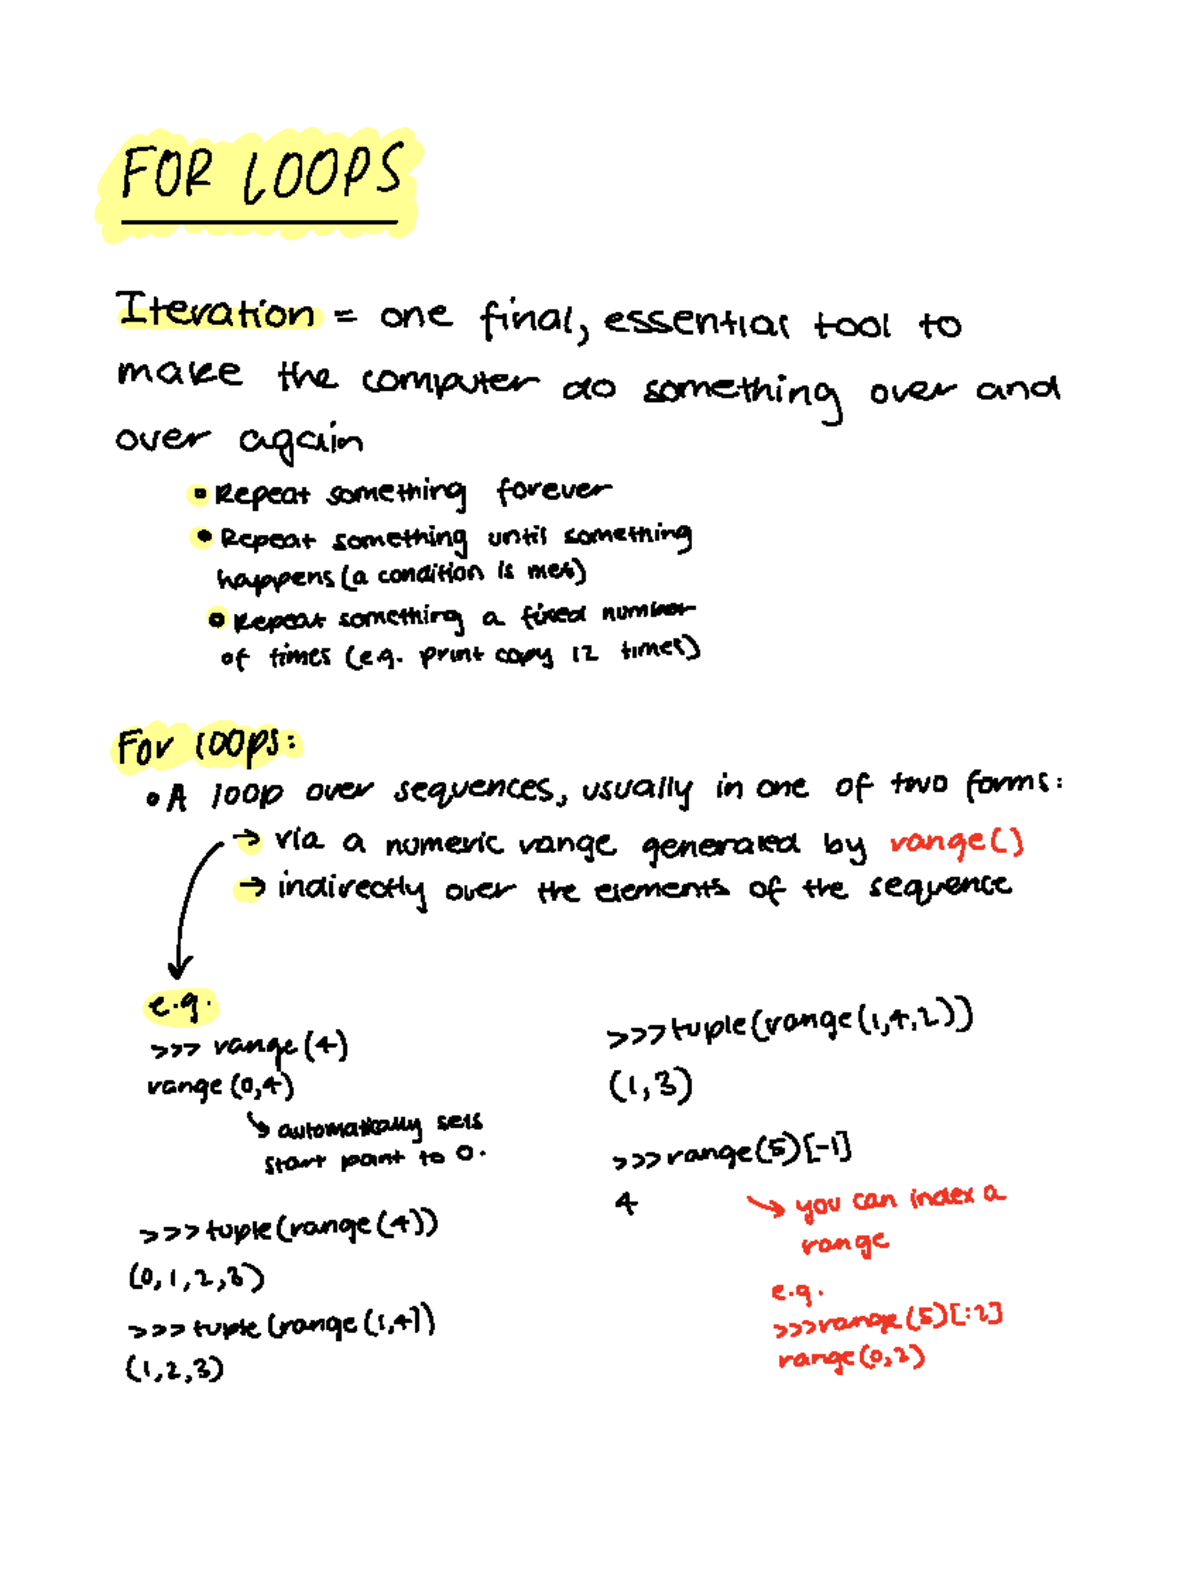 FOR LOOPS
Iteration = one final, essential tool to
make the computer do something over and
over again
• Repeat something forever
• Repeat something until something
happens (a condition is met)
• Repeat something a fixed number
of times (e.g. print copy 12 times)
For loops:
• A loop over sequences, usually in one of two forms:
→ via a numeric range generated by range()
→ indirectly over the elements of the sequence
e.g.
>>> range (4)
range (0,4)
↳ automatically sets
start point to 0.
>>> tuple (range (4))
(0,1,2,3)
>>> tuple (range (1,4))
(1,2,3)
>>> tuple (range (1,4,2))
(1,3)
>>> range (5) [-1]
4
↳ you can index a
range
e.g.
>>> range (5) [:2]
range (0,2)